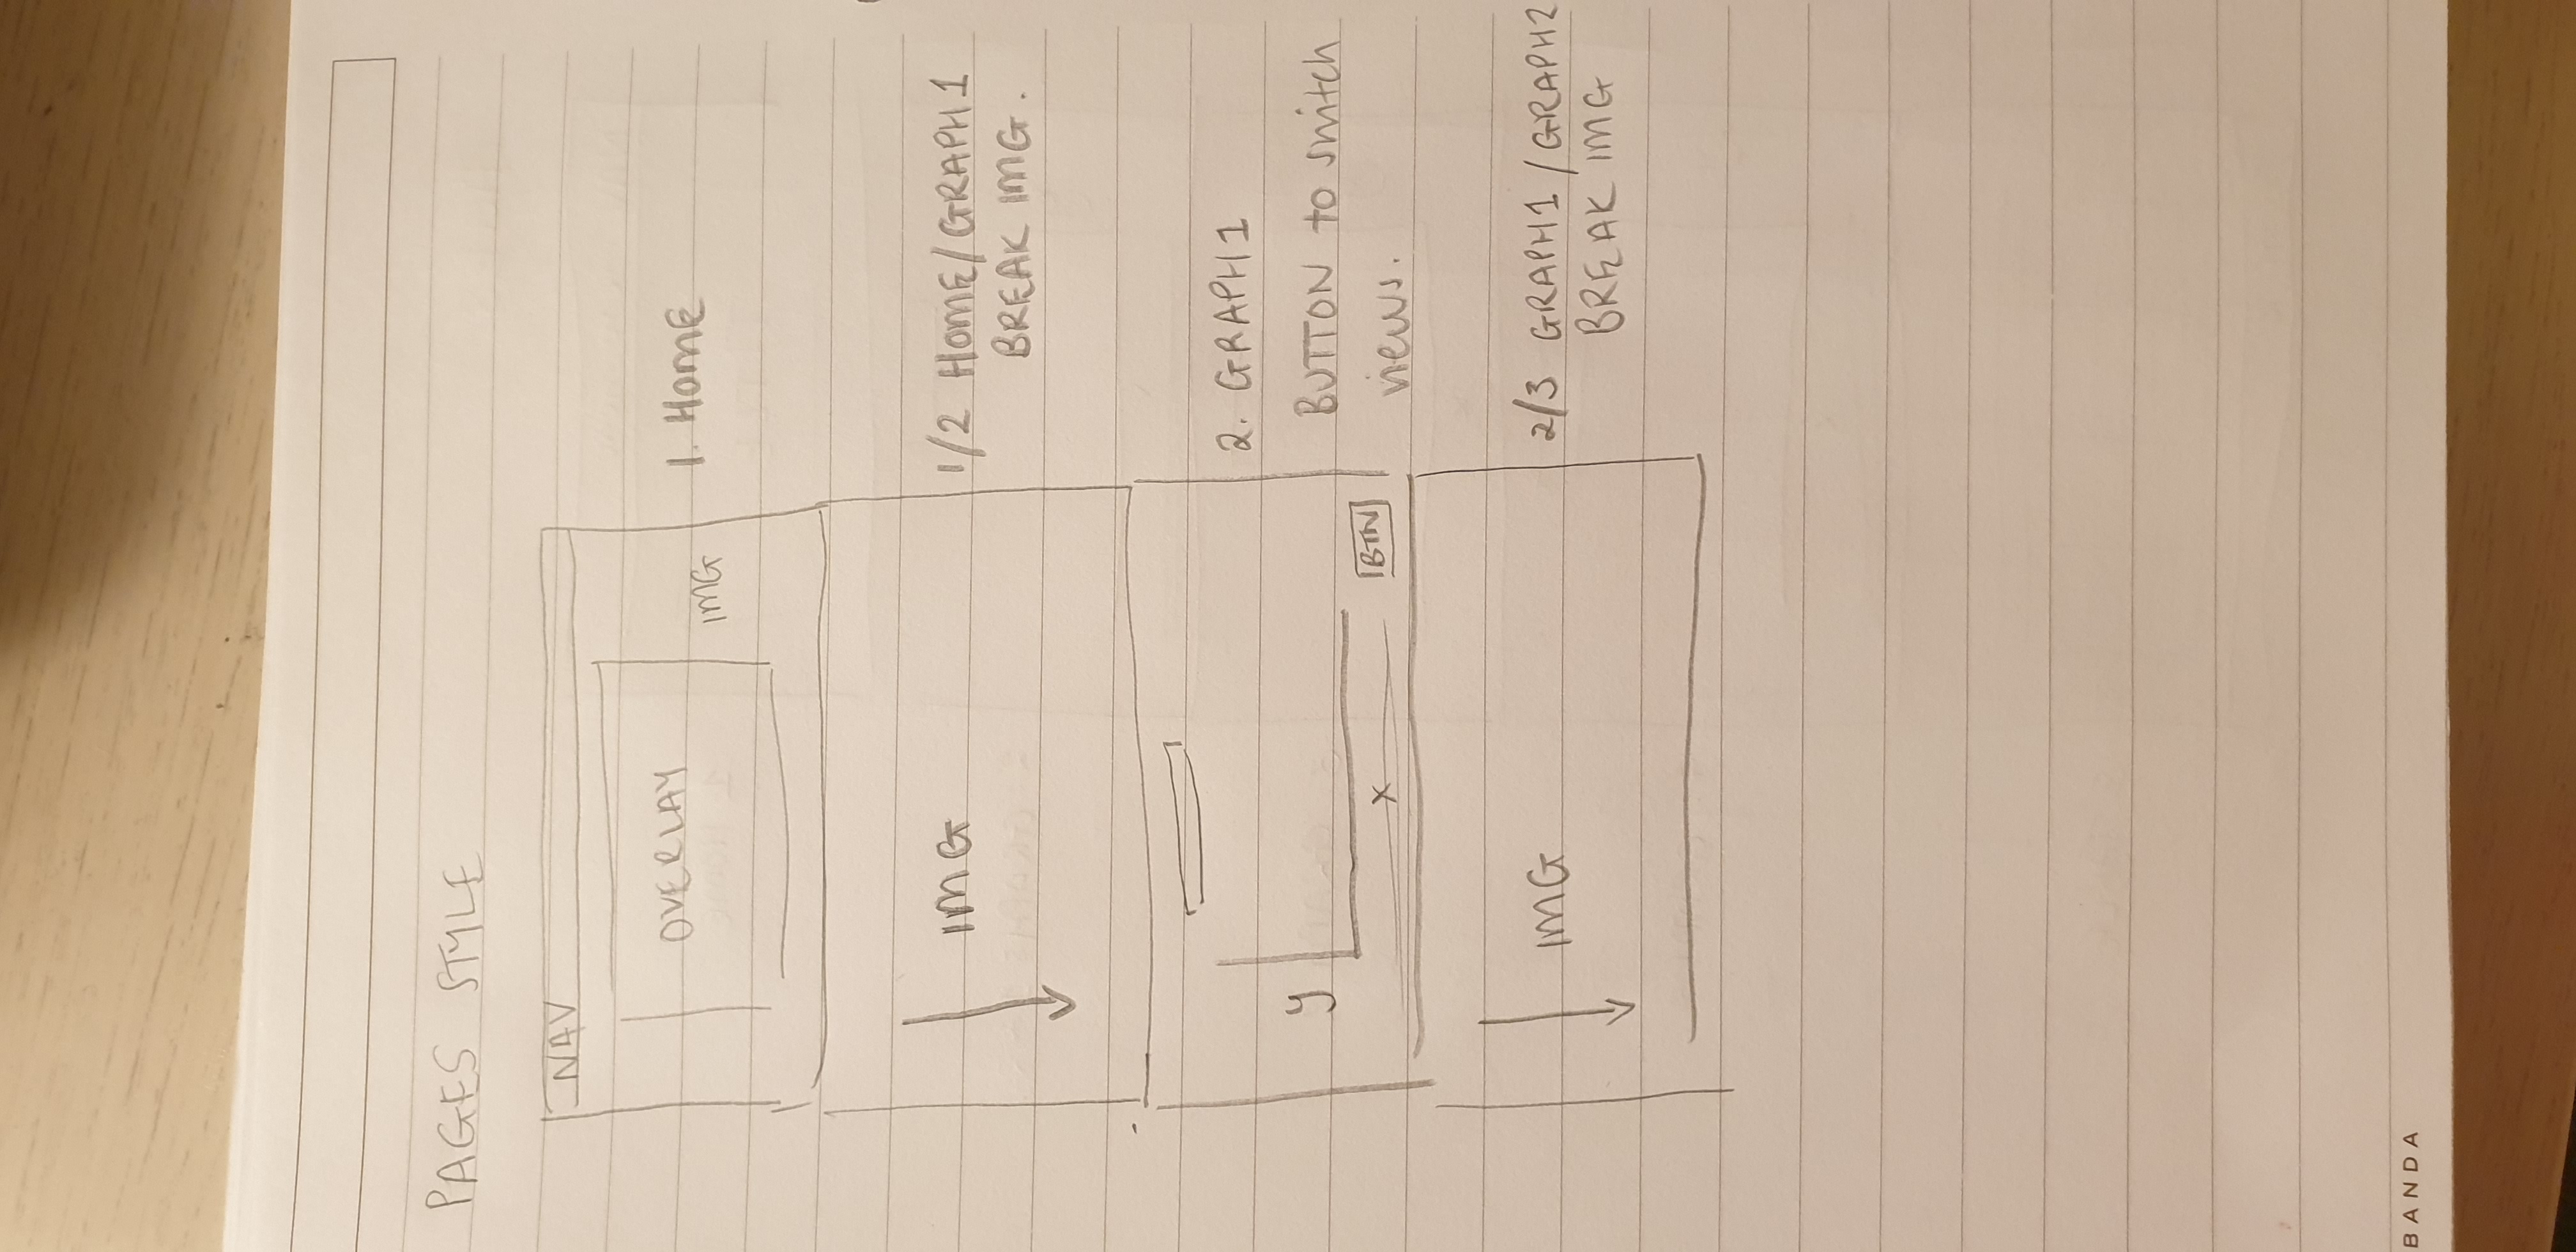 PAGES STYLE
NAV
OVERLAY
IMG
1. HOME
IMG
1/2 HOME/GRAPH1
BREAK IMG.
y
x
BTN
2. GRAPH1
BUTTON to switch
views.
IMG
2/3 GRAPH1/GRAPH2
BREAK IMG
BANDA